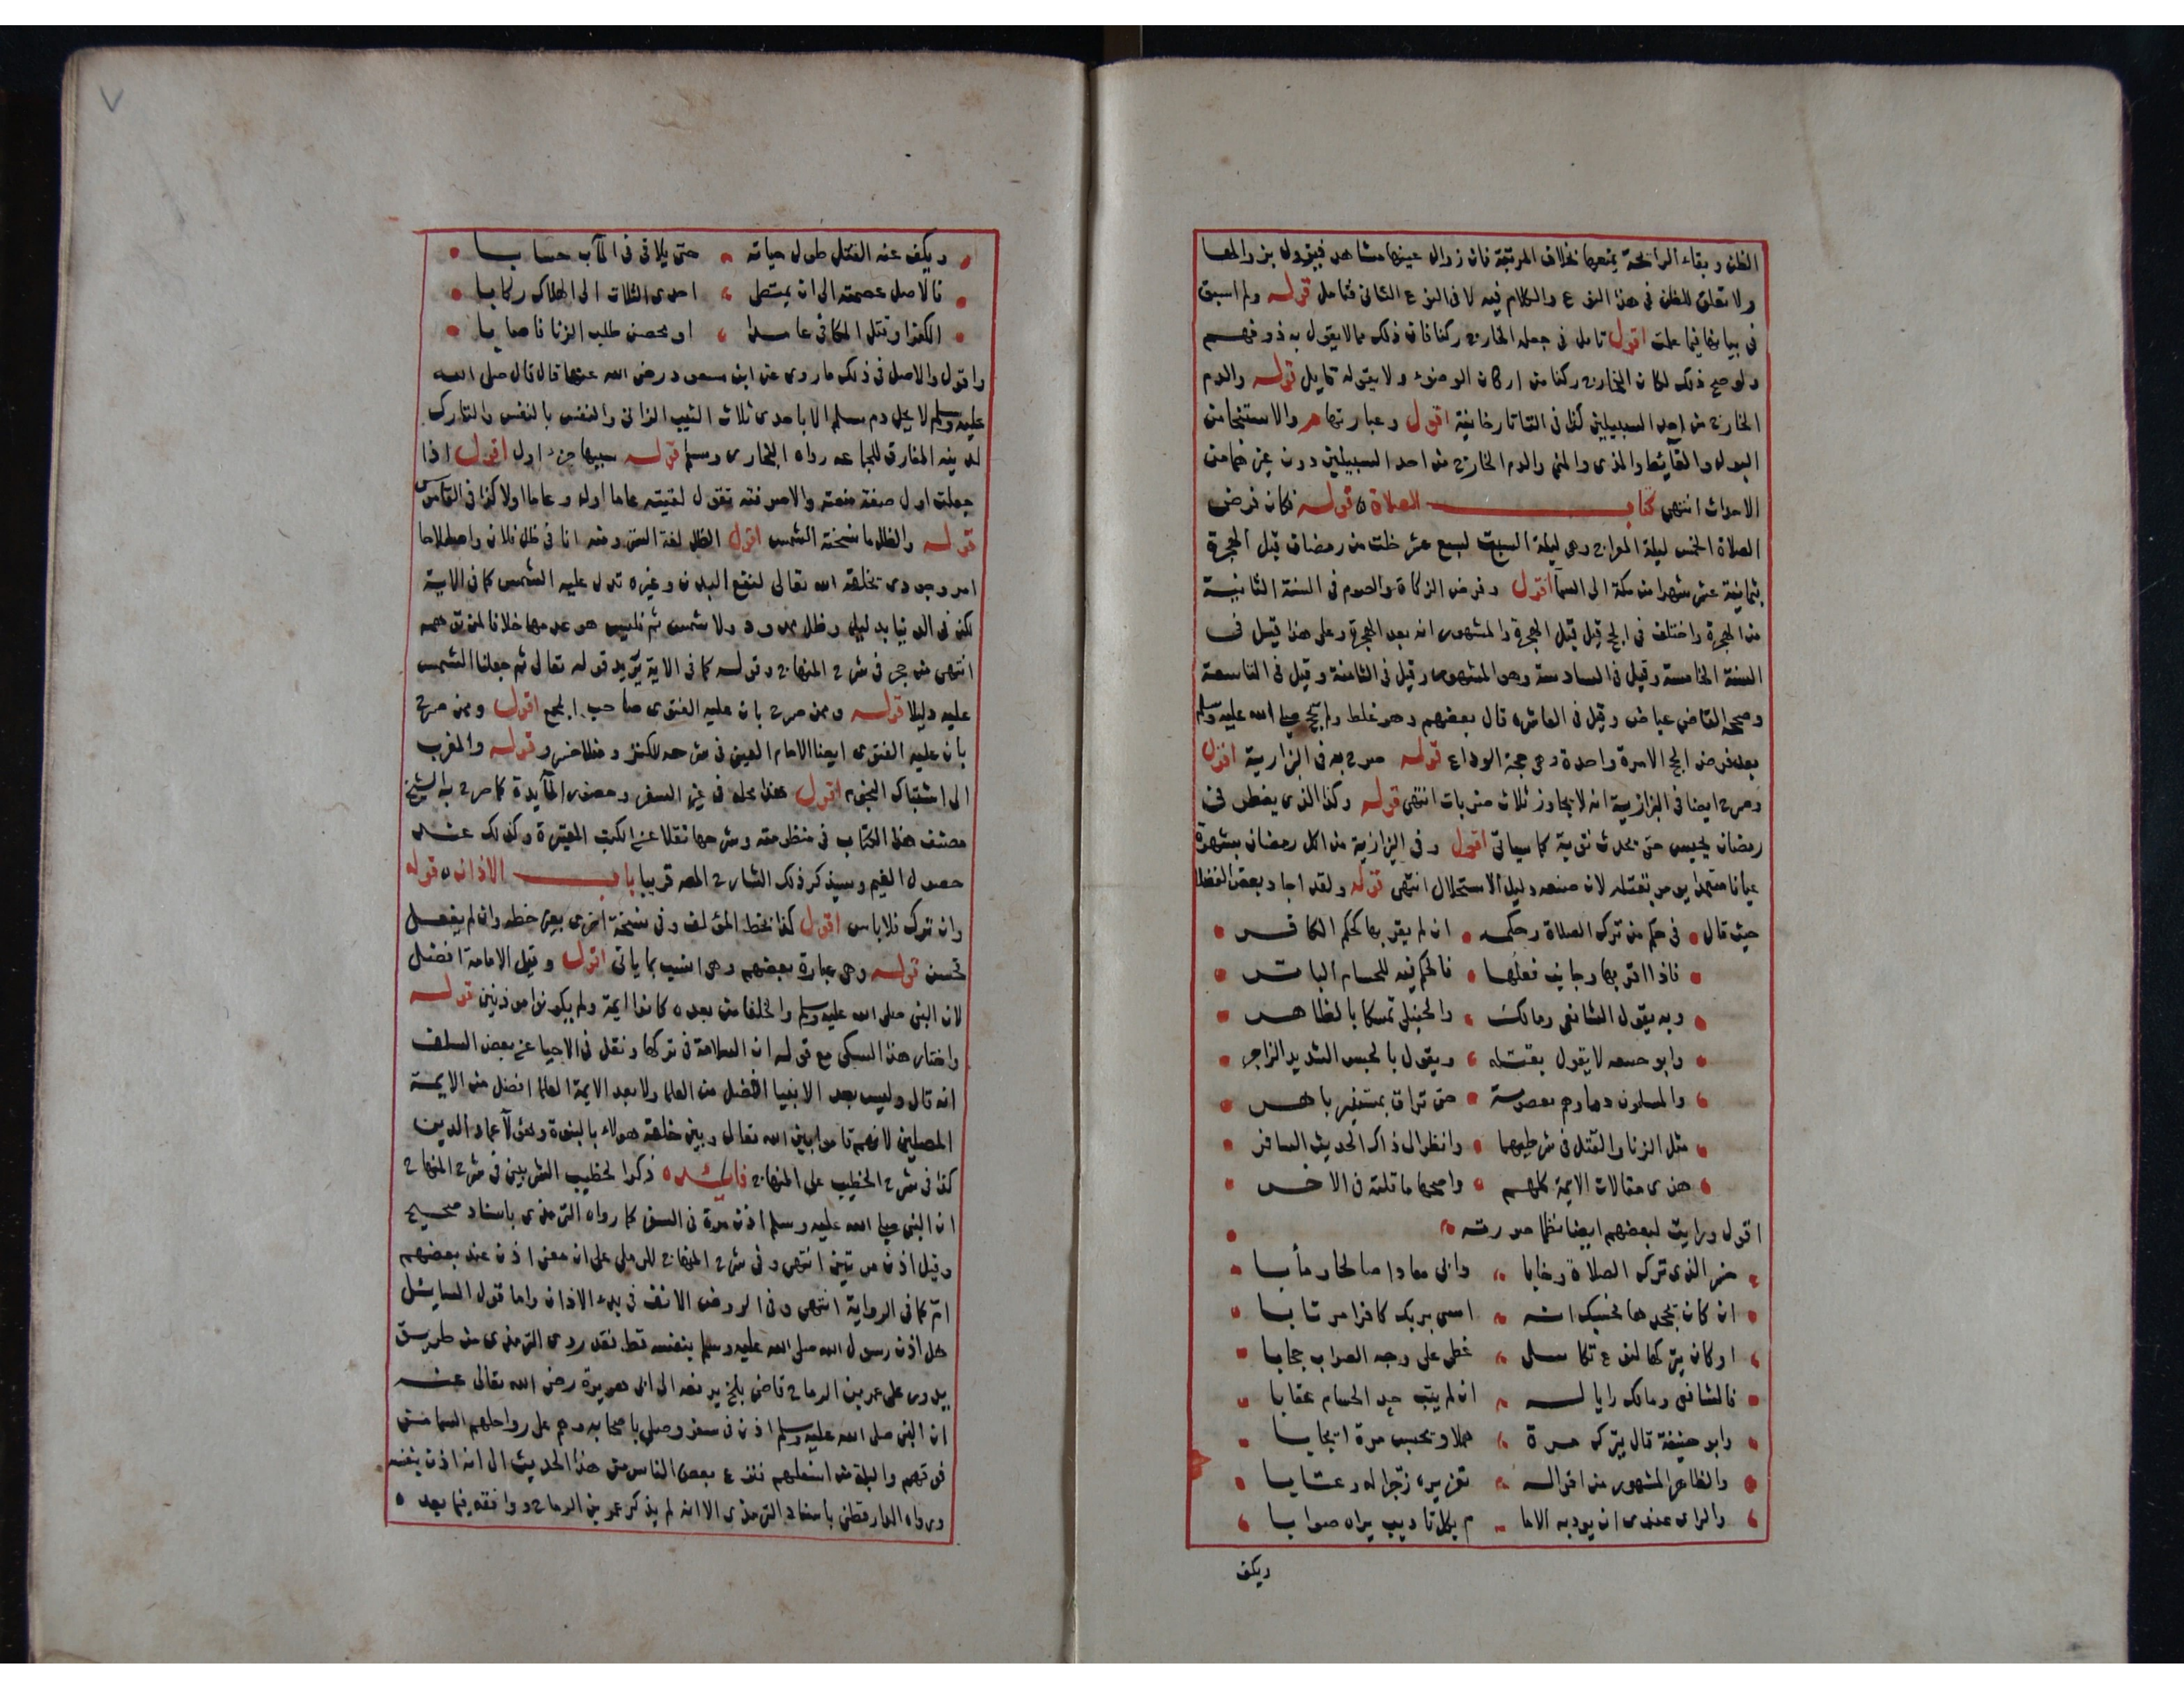 الظن وبقاء الرائحة يمنعها بخلاف المرتبة فان زوال عينها مشاهد فيزول بزوالها
ولا تعلق للظن في هذا النوع والكلام فيه لا في النوع الثاني فتامل قوله ولم اسبق
في بيانها فيما علمت اقول تامل في جعله الخارج ركنا فان ذلك مما لا يقول به ذو فهم
ولو صح ذلك لكان الخارج ركنا من اركان الوضوء ولا يقوله قايل قوله والدم
الخارج من احد السبيلين كذا في التاتارخانية اقول وعبارتها هر والاستنجا من
البول والغايط والمذي والمني والدم الخارج من احد السبيلين دون غيرها من
الاحداث انتهى كتاب الصلاة قوله فكان فرض
الصلاة الخمس ليلة المعراج وهي ليلة السبت لسبع عشر خلت من رمضان قبل الهجرة
بثمانية عشر شهرا من مكة الى السما اقول وفرض الزكاة والصوم في السنة الثانية
من الهجرة واختلف في الحج قيل قبل الهجرة والمشهور انه بعد الهجرة وعلى هذا قيل في
السنة الخامسة وقيل في السادسة وهو المشهور وقيل في الثامنة وقيل في التاسعة
وصححه القاضي عياض وقيل في العاشره قال بعضهم وهو غلط ولم يحج صلى الله عليه وسلم
بعد فرض الحج الا مرة واحدة وهي حجة الوداع قوله صرح به في البزازية اقول
وصرح ايضا في البزازية انه لا يجاوز ثلاث ضربات انتهى قوله وكذا الذي يفطر في
رمضان يحبس حتى يحدث توبة كما سياتي اقول وفي البزازية من اكل رمضان بشهرة
عيانا متعمدا يومر بقتله لان صنعه دليل الاستحلال انتهى قوله ولقد اجاد بعض الفضلا
حيث قال في حكم من ترك الصلاة وحكمه ان لم يقر بها كحكم الكافر
فاذا اقر بها وجانب فعلها فالحكم فيه للحسام الباتر
وبه يقول الشافعي ومالك والحنبلي تمسكا بالظاهر
وابو حنيفه لا يقول بقتله ويقول بالحبس الشديد الزاجر
والمسلمون دماوهم معصومة حتى تراق بمستنير باهر
مثل الزنا والقتل في شرطيهما وانظر الى ذاك الحديث السافر
هذي مقالات الايمة كلهم واصحها ما قلته في الاخر
اقول ورايت لبعضهم ايضا نظما صورته
خسر الذي ترك الصلاة وخابا وابى معادا صالحا ومأبا
ان كان يجحدها فحسبك انه امسى بربك كافرا مرتابا
او كان يتركها لنوع تكاسل غطى على وجه الصواب حجابا
فالشافعي ومالك رايا له ان لم يتب حد الحسام عقابا
وابو حنيفة قال يترك مرة هملا ويحبس مرة ايجابا
والظاهر المشهور من اقواله تعزيره زجرا له وعقابا
والراي عندي ان يودبه الاما م بكل تاديب يراه صوابا
ويكف
٧
ويكف عنه القتل طول حياته حتى يلاقي في المآب حسابا
فالاصل عصمته الى ان يمتطي احدى الثلاث الى الهلاك ركابا
الكفر او قتل المكافي عامدا او محصن طلب الزنا فاصابا
واقول والاصل في ذلك ما روى عن ابن مسعود رضي الله عنهما قال قال صلى الله
عليه وسلم لا يحل دم مسلم الا باحدى ثلاث الثيب الزاني والنفس بالنفس والتارك
لدينه المفارق للجماعه رواه البخاري ومسلم قوله سببها جزء اول اقول اذا
جعلت اول صفة منعته والاصرفته تقول لقيته عاما اول وعاما اولا كذا في القاموس
قوله والظل ما نسخته الشمس اقول الظل لغة الستر ومنه انا في ظل فلان واصطلاحا
امر وجودي يخلقه الله تعالى لنفع البدن وغيره تدل عليه الشمس كما في الاية
لكن في الدنيا بدليل وظل ممدود ولا شمس ثم فليس هو عدمها خلافا لمن توهمه
انتهى من حجر في شرح المنهاج وقوله كما في الاية يريد قوله تعالى ثم جعلنا الشمس
عليه دليلا قوله وممن صرح بان عليه الفتوى صاحب المجمع اقول وممن صرح
بان عليه الفتوى ايضا الامام العيني في شرحه للكنز ومنلا خسرو قوله والمغرب
الى اشتباك النجوم اقول هذا محله في غير السفر وحضور المآيدة كما صرح به الشيخ
مصنف هذا الكتاب في منظومته وشرحها نقلا عن الكتب المعتبرة وكذلك عند
حصول الغيم وسيذكر ذلك الشارح المصه قريبا باب الاذان قوله
وان ترك فلا باس اقول كذا بخط المؤلف وفي نسخة اخرى بغير خطه وان لم يفعل
فحسن قوله وهي عبارة بعضهم وهي انسب بما ياتي اقول وقيل الامامة افضل
لان النبي صلى الله عليه وسلم والخلفا من بعده كانوا ايمة ولم يكونوا موذنين قوله
واختار هذا السبكي مع قوله ان السلامة في تركها ونقل في الاحيا عن بعض السلف
انه قال وليس بعد الانبيا افضل من العلما ولا بعد الايمة العلما افضل من الايمة
المصلين لانهم قاموا بين الله تعالى وبين خلقه هولاء بالنبوة وهؤلآ عماد الدين
كذا في شرح الخطيب على المنهاج فايدة ذكر الخطيب الشربيني في شرح المنهاج
ان النبي صلى الله عليه وسلم اذن مرة في السفر كما رواه الترمذي باسناد صحيح
وقيل اذن مرتين انتهى وفي شرح المنهاج للرملي على ان معنى اذن عند بعضهم
امر كما في الرواية انتهى وفي الروض الانف في بدء الاذان واما قول السايل
هل اذن رسول الله صلى الله عليه وسلم بنفسه قط فقد روى الترمذي من طريق
يدور على عمر بن الرماح قاضي بلخ يرفعه الى ابي هريرة رضي الله تعالى عنه
ان النبي صلى الله عليه وسلم اذن في سفر وصلى باصحابه وهم على رواحلهم السما من
فوقهم والبلة من اسفلهم فنزع بعض الناس من هذا الحديث الى انه اذن بنفسه
ورواه الدارقطني باسناد الترمذي الا انه لم يذكر عمر بن الرماح ووافقه فيما بعده